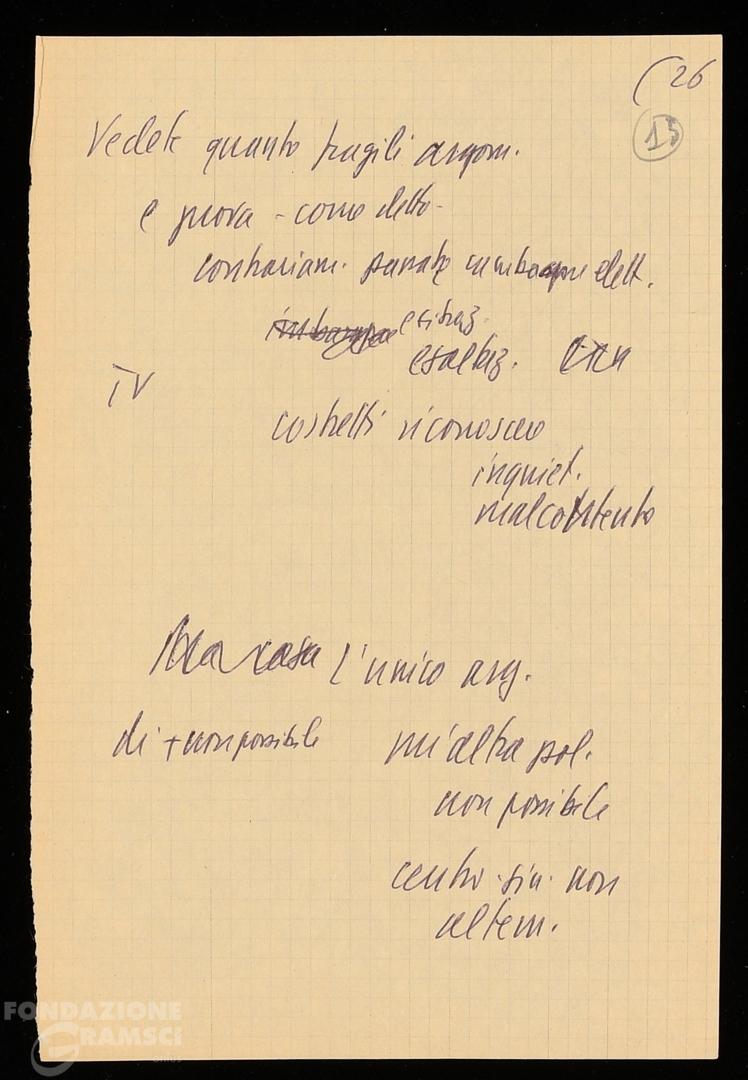 (26
15
Vedete quanto fragili argom.
e prova - come detto -
contrariam. passate elett.
esitaz.
esaltaz.
IV
costretti riconoscere
inquiet.
malcontento
l'unico arg.
di + non possibile
un'altra pol.
non possibile
centro-sin. non
altern.
FONDAZIONE
GRAMSCI
onlus